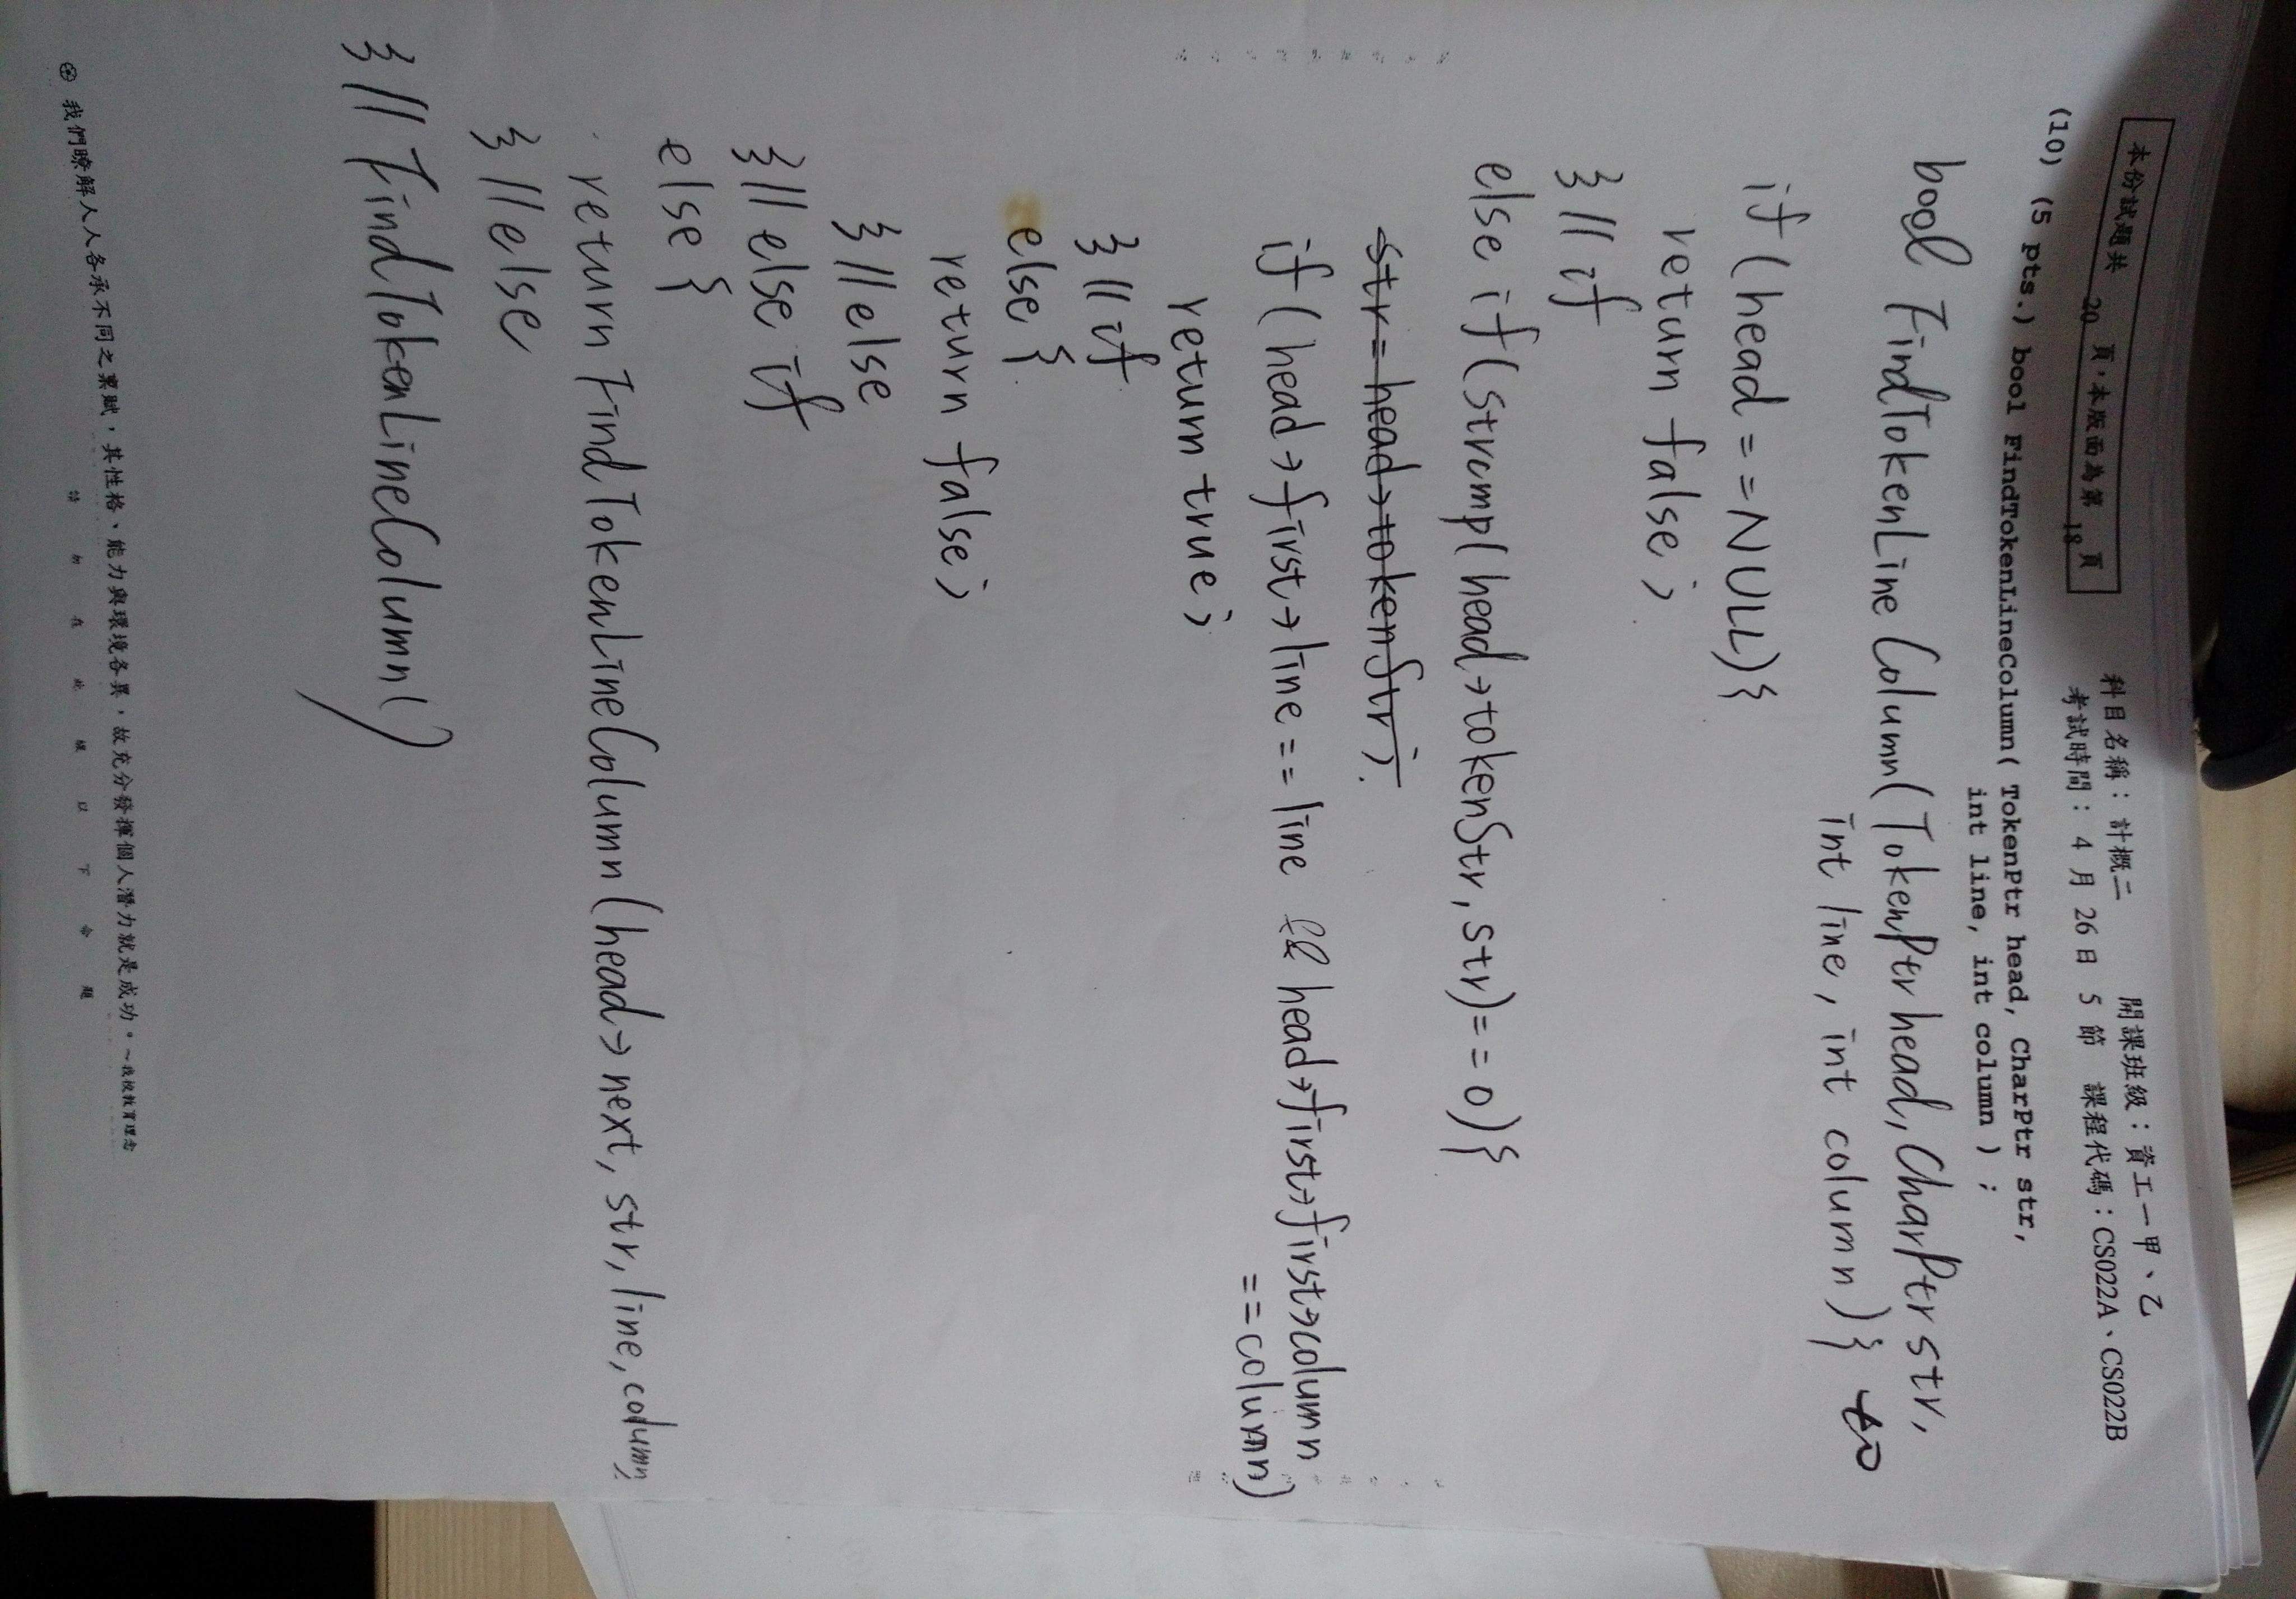 本份試題共 20 頁，本版面為第 18 頁
科目名稱：計概二 開課班級：資工一甲、乙
考試時間：4 月 26 日 5 節 課程代碼：CS022A、CS022B
(10) (5 pts.) bool FindTokenLineColumn( TokenPtr head, CharPtr str,
int line, int column ) ;
bool FindTokenLineColumn(TokenPtr head, CharPtr str,
int line, int column)}
if(head==NULL){
return false;
}//if
else if(strcmp(head→tokenStr, str)==0){
str=head→tokenStr;
if(head→first→line==line && head→first→first→column
==column)
return true;
}//if
else{
return false;
}//else
}//else if
else{
return FindTokenLineColumn(head→next, str, line, column
}//else
}//FindTokenLineColumn()
我們瞭解人人各承不同之稟賦，其性格、能力與環境各異，故充分發揮個人潛力就是成功。~我校教育理念
請勿在此線以下命題